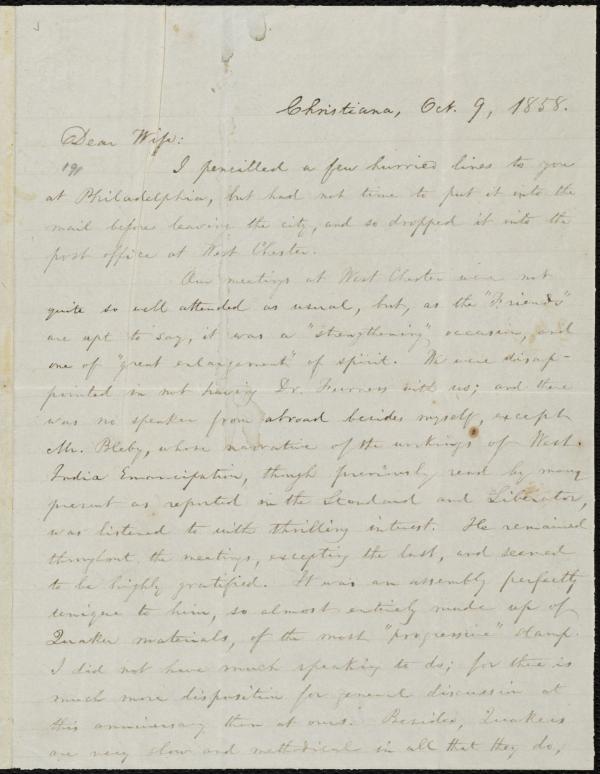 Christiana, Oct. 9, 1858.
Dear Wife:
I pencilled a few hurried lines to you
at Philadelphia, but had not time to put it into the
mail before leaving the city, and so dropped it into the
post office at West Chester.
Our meetings at West Chester were not
quite so well attended as usual, but, as the "Friends"
are apt to say, it was a "strengthening" occasion, and
one of "great enlargement" of spirit. We were disap-
pointed in not having Dr. Furness with us; and there
was no speaker from abroad besides myself, except
Mr. Bleby, whose narrative of the workings of West
India Emancipation, though previously read by many
present as reported in the Standard and Liberator,
was listened to with thrilling interest. He remained
throughout the meetings, excepting the last, and seemed
to be highly gratified. It was an assembly perfectly
unique to him, so almost entirely made up of
Quaker materials, of the most "progressive" stamp.
I did not have much speaking to do; for there is
much more disposition for general discussion at
this anniversary than at ours. Besides, Quakers
are very slow and methodical in all that they do,